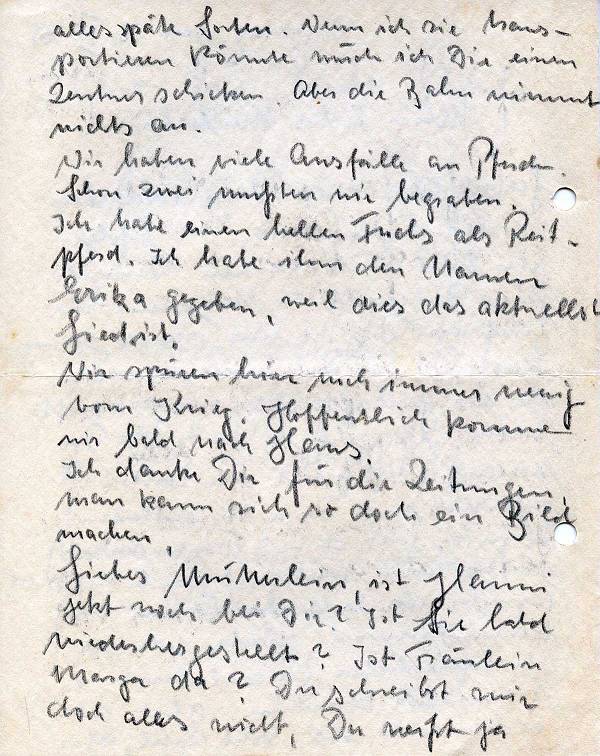 alles späte Sorten. Wenn ich sie trans-
portieren könnte würde ich Dir einen
Zentner schicken. Aber die Bahn nimmt
nichts an.
Wir haben viele Ausfälle an Pferden.
Schon zwei mußten wir begraben.
Ich habe einen hellen Fuchs als Reit-
pferd. Ich habe ihm den Namen
Erika gegeben, weil dies das aktuellste
Lied ist.
Wir spüren hier noch immer wenig
vom Krieg. Hoffentlich kommen
wir bald nach Haus.
Ich danke Dir für die Zeitungen,
man kann sich so doch ein Bild
machen.
Liebes Mutterlein, ist Hanni
jetzt noch bei Dir? Ist Sie bald
wiederhergestellt? Ist Fräulein
Marga da? Du schreibst mir
doch alles nicht, Du weißt ja